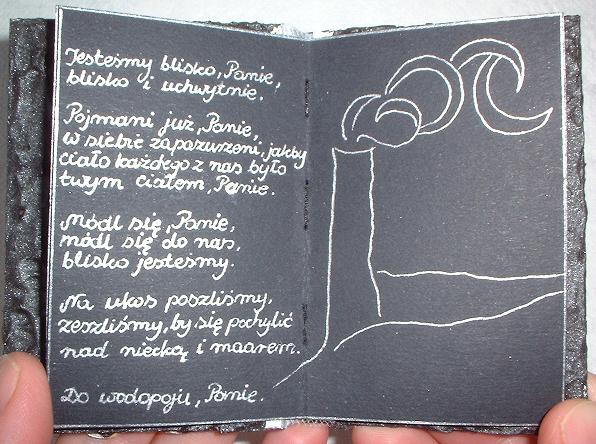 Jesteśmy blisko, Panie,
blisko i uchwytnie.
Pojmani już, Panie,
w siebie zapazurzeni, jakby
ciało każdego z nas było
twym ciałem, Panie.
Módl się, Panie,
módl się do nas,
blisko jesteśmy.
Na ukos poszliśmy,
zeszliśmy, by się pochylić
nad niecką i maarem.
Do wodopoju, Panie.